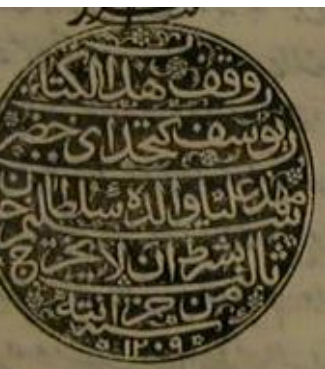 وقف هذا الكتاب
يوسف كتخداى حضرت
مهد علياى والده سلطان سليم خان
ثالث بشرط ان لا يخرج
من خزانته
١٢٠٩